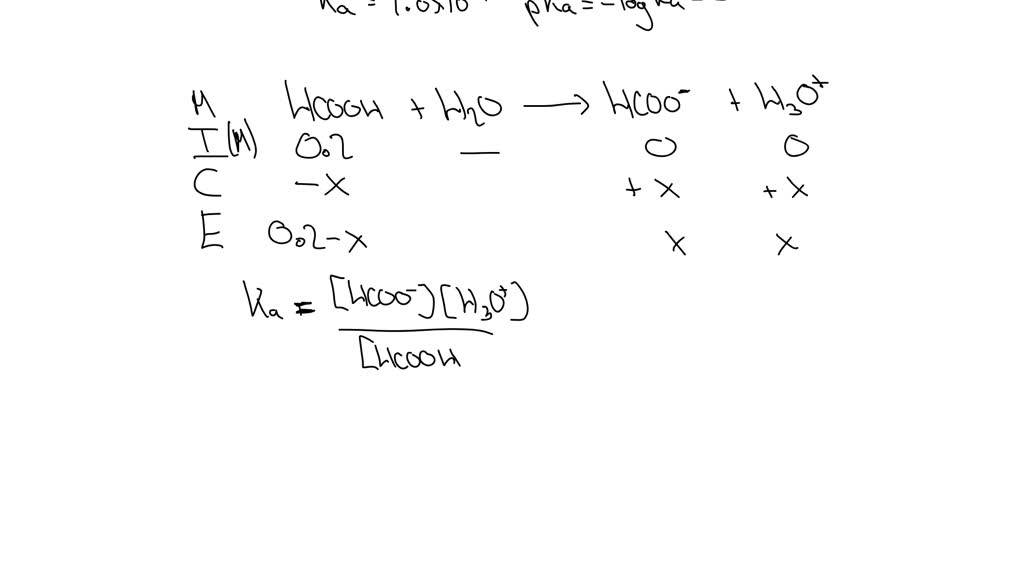 Ka = 1.0x10 pKa = -log Ka =
M HCOOH + H₂O ⟶ HCOO⁻ + H₃O⁺
I (M) 0.2 — 0 0
C -x +x +x
E 0.2-x x x
Ka = [HCOO⁻][H₃O⁺]
[HCOOH